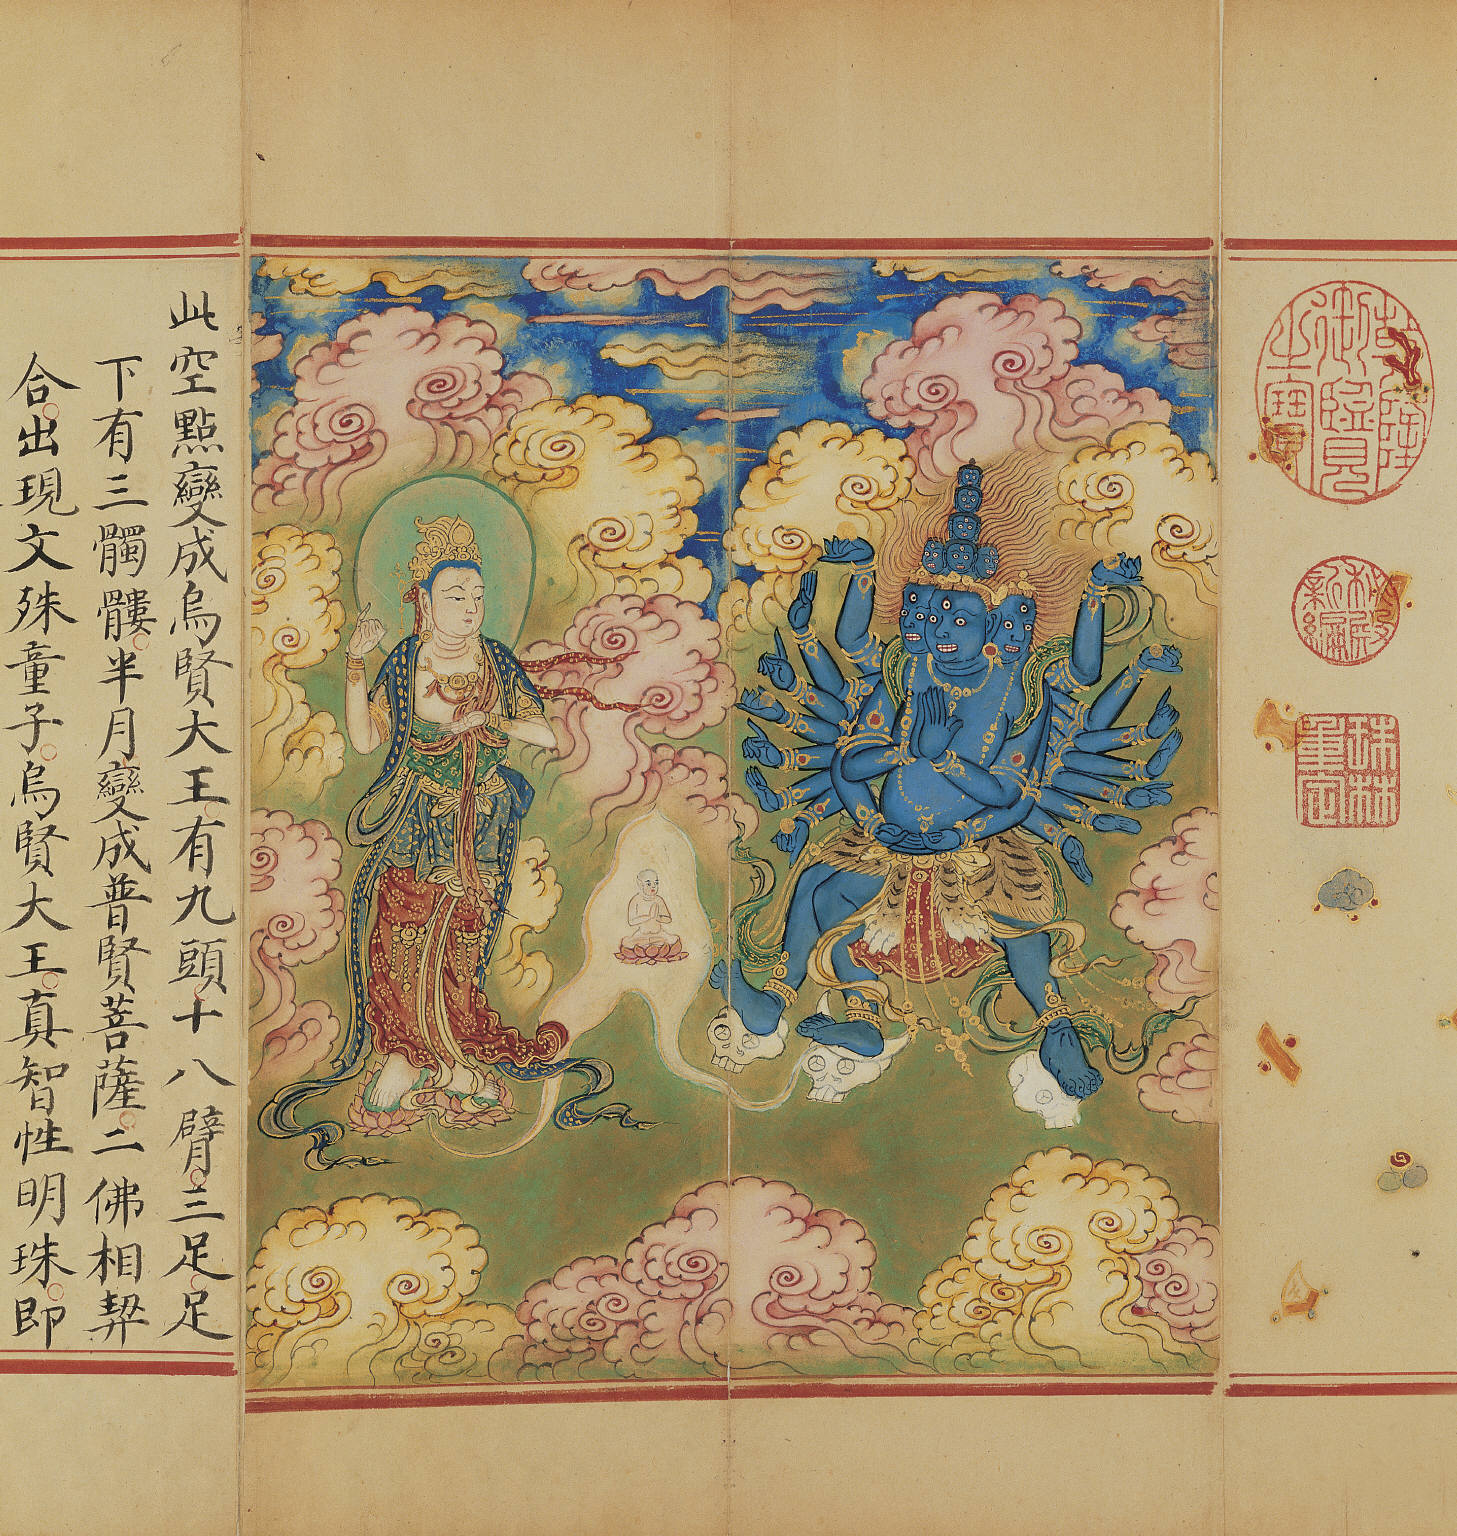 乾隆御覽之寶
秘殿新編
珠林重定
此空點變成烏賢大王有九頭十八臂三足足
下有三髑髏半月變成普賢菩薩二佛相契
合出現文殊童子烏賢大王真智性明珠即